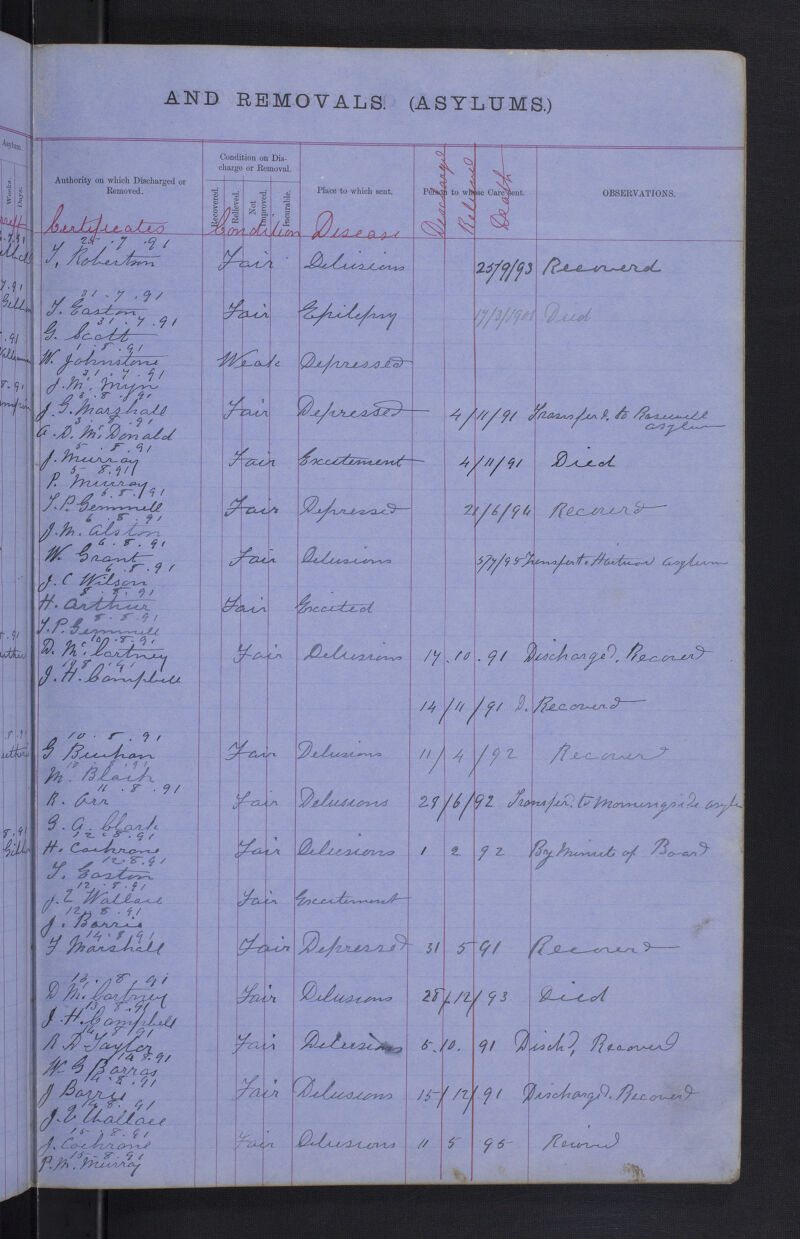 AND REMOVALS. (ASYLUMS.)
Asylum.
Weeks.
Days.
Authority on which Discharged or Removed.
Condition on Discharge or Removal.
Recovered.
Relieved.
Not Improved.
Incurable.
Place to which sent.
Person to whose Care sent.
OBSERVATIONS.
Certificates Condition Disease Discharged Relieved Death
25.7.91
T. Robertson Fair Delusions 25/9/93 Recoverd
31.7.91
T. Easton Fair Epilepsy 17/3/1901 Died
31.7.91
G. Scott
1.8.91
W. Johnstone Weak Depressed
31.7.91
J. Mc
3.8.91
J. G. Marshall Fair Depressed 4/11/91 Transferd. to Rosewell asylum
3.8.91
A. D. McDonald
5.8.91
J. Murray Fair Excitement 4/11/91 Died
5.8.91
P. Murray
6.8.91
T. P. Gemmell Fair Depressed 21/6/94 Recoverd
6.8.91
J. M. Alston
6.8.91
W. Grant Fair Delusions 5/7/95 Transfert. Hartwood asylum
6.8.91
J. C Wilson
8.8.91
H. Arthur Fair Excited
8.8.91
T. P. Gemmell
10.8.91
D. Mc.Cartney Fair Delusions 17.10.91 Discharged, Recoverd
10.8.91
J. H. Campbell
14/11/91 D. Recoverd
10.8.91
G Buchan Fair Delusions 11/4/92 Recoverd
M. Black
11.8.91
R. Orr Fair Delusions 28/6/92 Transferd. to Morningside asylum
G. A. Clark
12.8.91
H. Cochrane Fair Delusions 1 2 92 By Minute of Board
12.8.91
T. Easton
12.8.91
J. L Wallace Fair Excitement
12.8.91
J. Barrie
14.8.91
F Marshall Fair Depressed 31 5 91 Recoverd
13.8.91
D Mc.Cartney Fair Delusions 28/12/93 Died
13.8.91
J. H. Campbell
14.8.91
R D Taylor Fair Delusions 5.10.91 Dischd, Recoverd
14.8.91
W. G Barras
14.8.91
J Barrie Fair Delusions 15/12/91 Discharged. Recoverd
14.8.91
J. L Wallace
15.8.91
J. Cochrane Fair Delusions 11 5 95
15.8.91
P. M. Murray